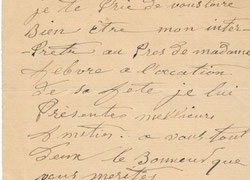 je te Prie de vous loire
Bien Etre mon inter-
Prete au Pres de madame
Lefevre a l'ocation
De sa fete je lui
Présentes meilleurs
a vous tout
Deux le Bonneur que
vous merites